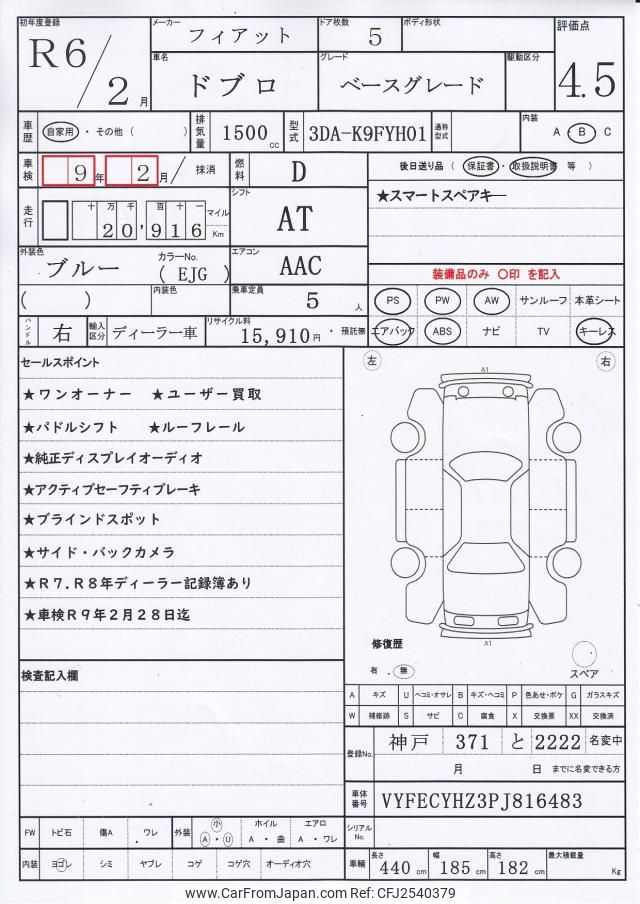 初年度登録 R6/2 月
メーカー フィアット
ドア枚数 5
ボディ形状
評価点 4.5
車名 ドブロ
グレード ベースグレード
駆動区分
車歴 自家用 ・ その他 ( )
排気量 1500 cc
型式 3DA-K9FYH01
通称型式
内装 A ・ B C
車検 9 年 2 月 / 抹消
燃料 D
後日送り品 ( 保証書 ・ 取扱説明書 等 )
走行 十 万 千 百 十 一 マイル
20,916 Km
シフト AT
★スマートスペアキー
外装色 ブルー
カラーNo. ( EJG )
エアコン AAC
装備品のみ 〇印 を記入
( )
内装色
乗車定員 5 人
PS PW AW サンルーフ 本革シート
ハンドル 右
輸入区分 ディーラー車
リサイクル料 15,910円 ・ 預託無
エアバック ABS ナビ TV キーレス
セールスポイント
★ワンオーナー ★ユーザー買取
★パドルシフト ★ルーフレール
★純正ディスプレイオーディオ
★アクティブセーフティブレーキ
★ブラインドスポット
★サイド・バックカメラ
★R7.R8年ディーラー記録簿あり
★車検R9年2月28日迄
左 A1 右
A1
修復歴
有 . 無
スペア
検査記入欄
A キズ U ヘコミ・オサレ B キズ・ヘコミ P 色あせ・ボケ G ガラスキズ
W 補修跡 S サビ C 腐食 X 交換要 XX 交換済
登録No. 神戸 371 と 2222 名変中
月 日 までに名変できる方
車体番号 VYFECYHZ3PJ816483
シリアルNo.
FW トビ石 傷A . ワレ
外装 小 A ・ U
ホイル A ・ 曲
エアロ A ・ ワレ
内装 ヨゴレ シミ ヤブレ コゲ コゲ穴 オーディオ穴
車輌 長さ 440 cm 幅 185 cm 高さ 182 cm 最大積載量 Kg
www.CarFromJapan.com Ref: CFJ2540379